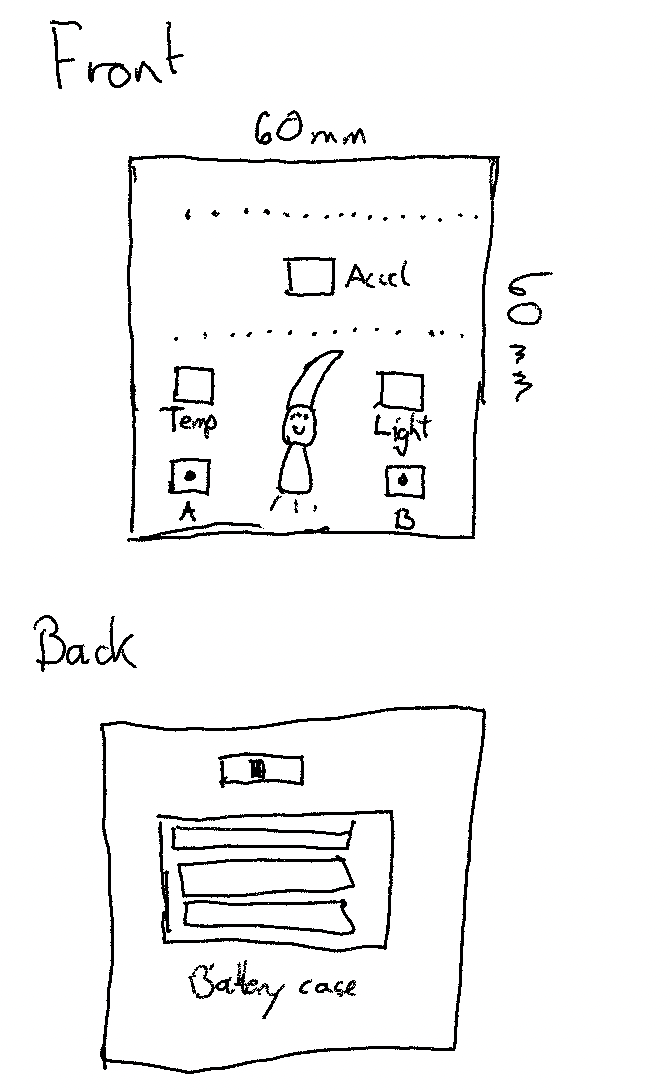 Front
60mm
Accel
60mm
Temp
Light
A
B
Back
Battery case